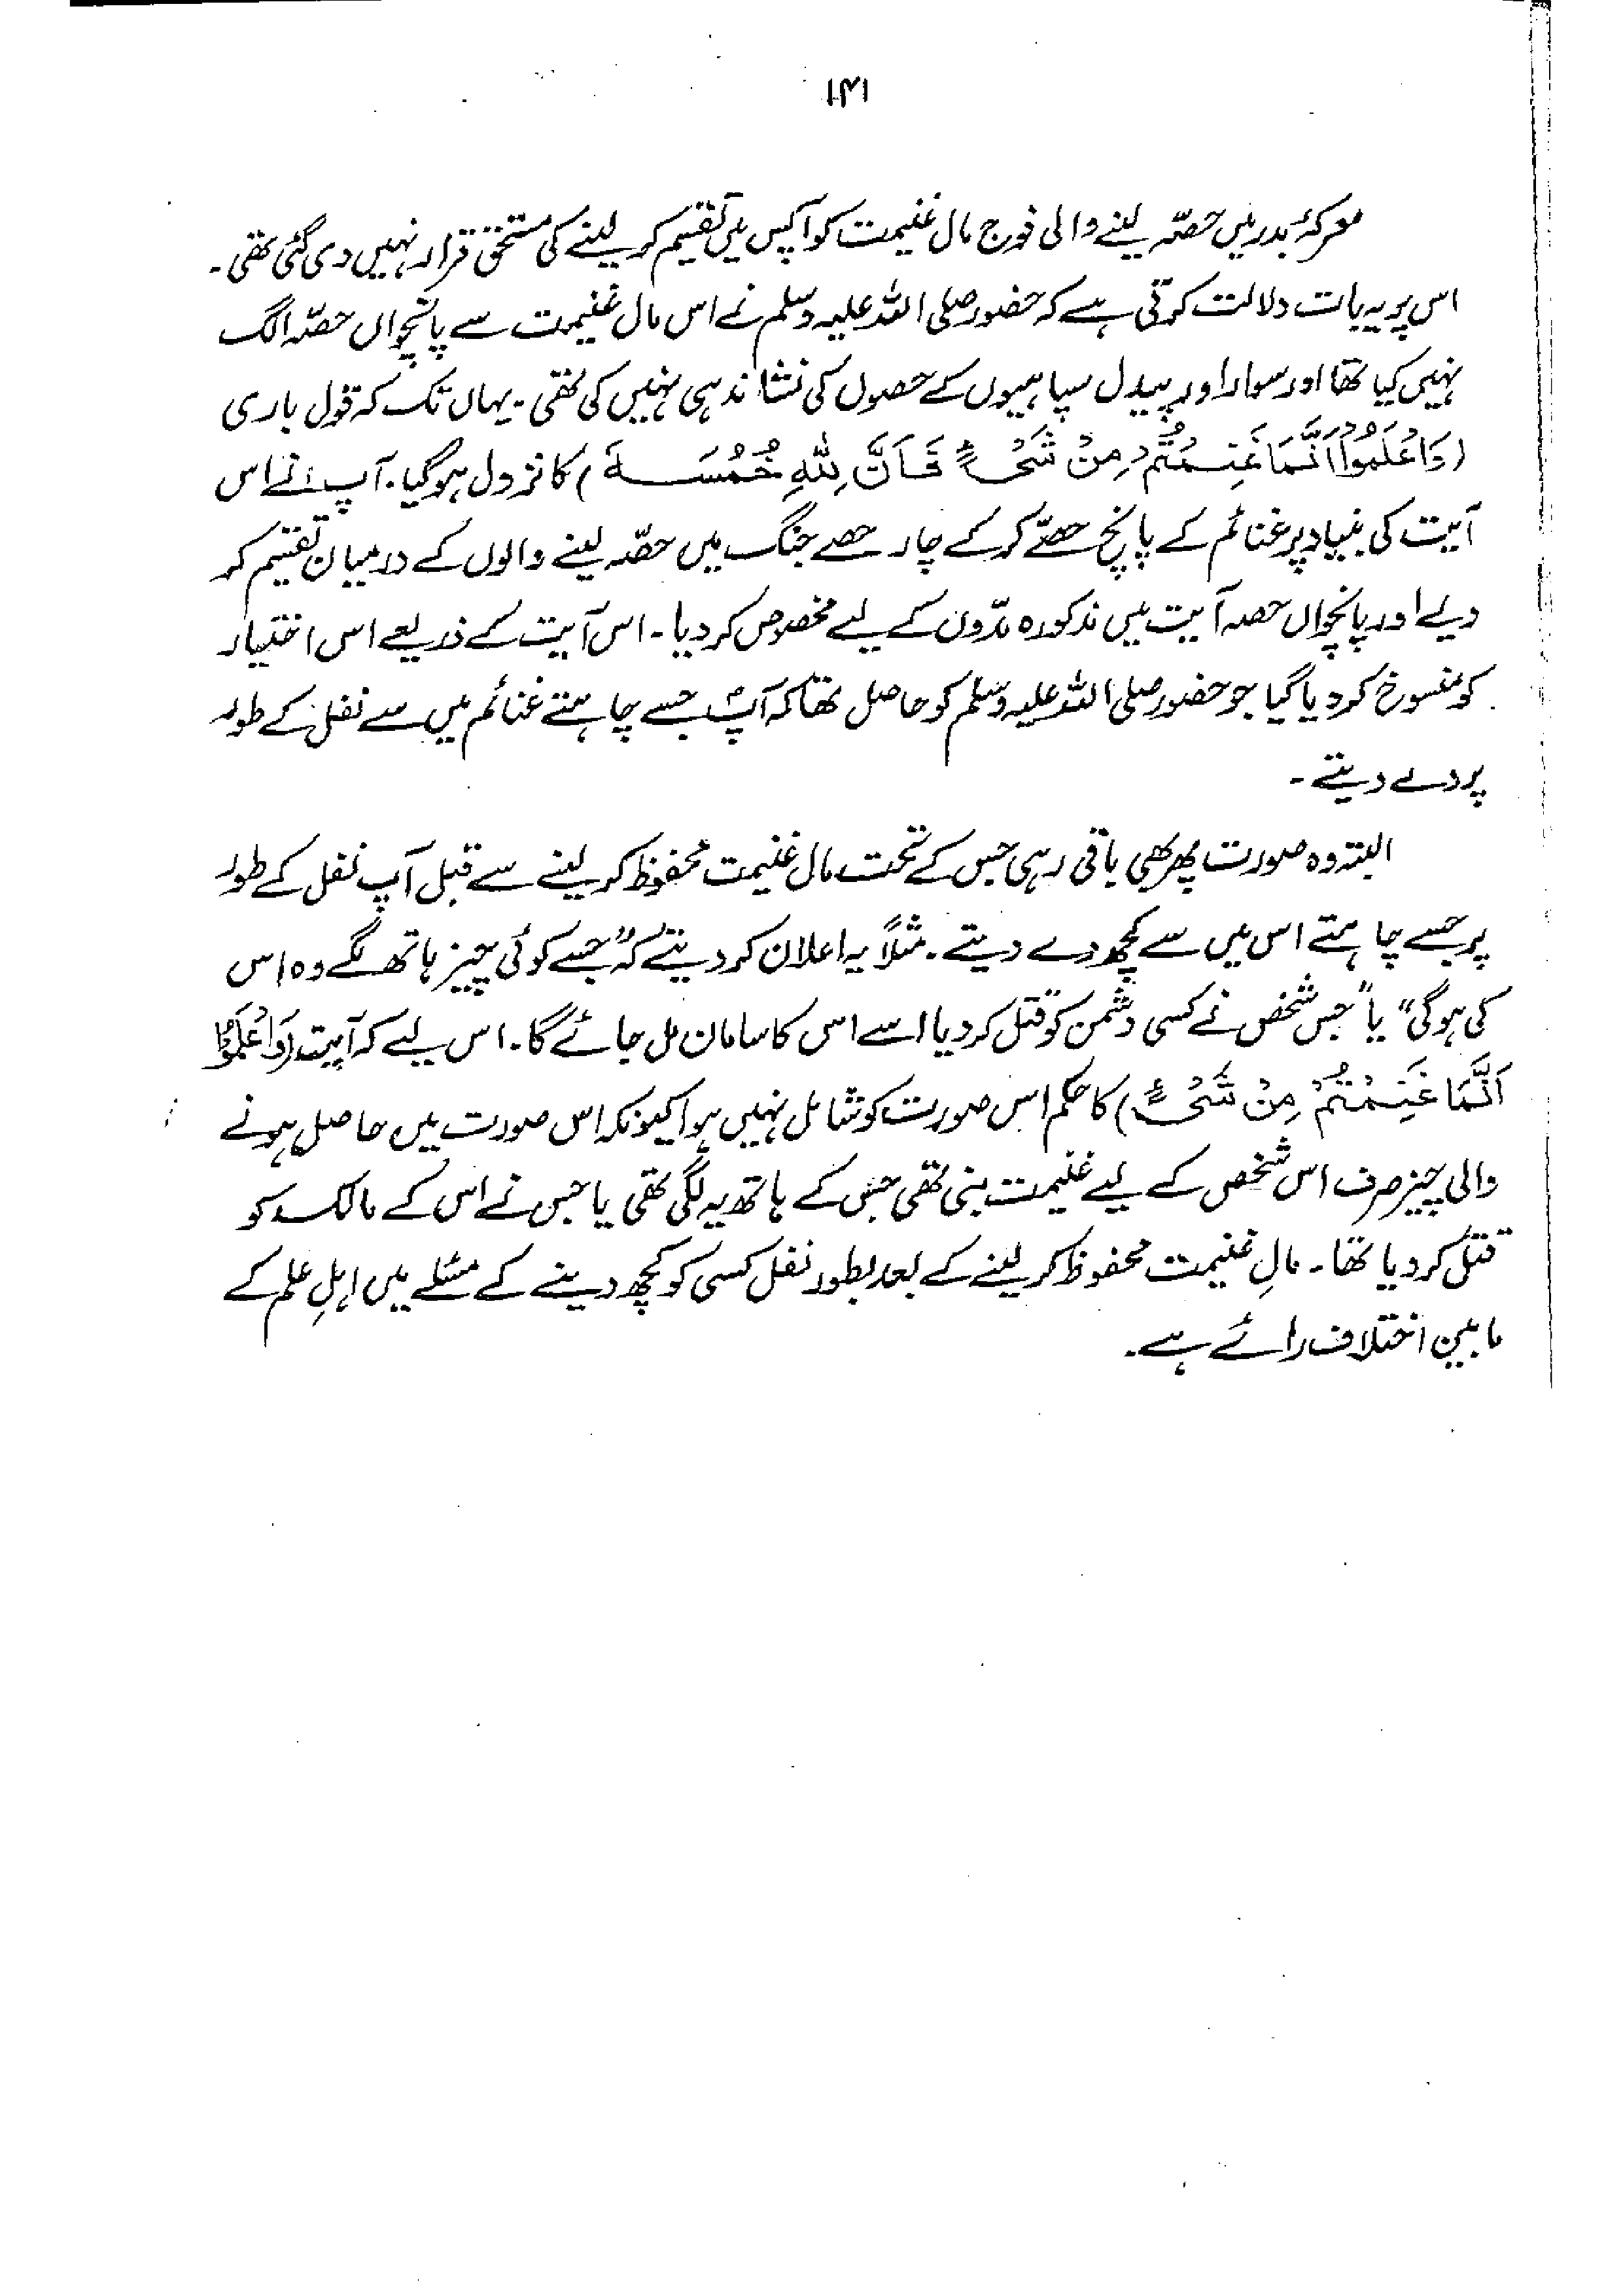 ۱۴۱
معرکۂ بدر میں حصّہ لینے والی فوج مال غنیمت کو آپس میں تقسیم کر لینے کی مستحق قرار نہیں دی گئی تھی۔
اس پر یہ بات دلالت کرتی ہے کہ حضور صلی اللہ علیہ وسلم نے اس مال غنیمت سے پانچواں حصّہ الگ
نہیں کیا تھا اور سوار اور پیدل سپاہیوں کے حصوں کی نشاندہی نہیں کی تھی۔ یہاں تک کہ قول باری
(وَاعْلَمُوْا اَنَّمَا غَنِمْتُمْ مِنْ شَیْءٍ فَاَنَّ لِلّٰهِ خُمُسَهٗ) کا نزول ہو گیا۔ آپ نے اس
آیت کی بنیاد پر غنائم کے پانچ حصّے کر کے چار حصے جنگ میں حصّہ لینے والوں کے درمیان تقسیم کر
دیے اور پانچواں حصہ آیت میں مذکورہ مدّوں کے لیے مخصوص کر دیا۔ اس آیت کے ذریعے اس اختیار
کو منسوخ کر دیا گیا جو حضور صلی اللہ علیہ وسلم کو حاصل تھا کہ آپؐ جسے چاہتے غنائم میں سے نفل کے طور
پر دے دیتے۔
البتہ وہ صورت پھر بھی باقی رہی جس کے تحت مال غنیمت محفوظ کر لینے سے قبل آپ نفل کے طور
پر جسے چاہتے اس میں سے کچھ دے دیتے۔ مثلاً یہ اعلان کر دیتے کہ "جسے کوئی چیز ہاتھ لگے وہ اس
کی ہوگی" یا "جس شخص نے کسی دشمن کو قتل کر دیا اسے اس کا سامان مل جائے گا۔ اس لیے کہ آیت (وَاعْلَمُوْا
اَنَّمَا غَنِمْتُمْ مِنْ شَیْءٍ) کا حکم اس صورت کو شامل نہیں ہوا کیونکہ اس صورت میں حاصل ہونے
والی چیز صرف اس شخص کے لیے غنیمت بنی تھی جس کے ہاتھ یہ لگی تھی یا جس نے اس کے مالک کو
قتل کر دیا تھا۔ مالِ غنیمت محفوظ کر لینے کے بعد بطور نفل کسی کو کچھ دینے کے مسئلے میں اہلِ علم کے
مابین اختلاف رائے ہے۔